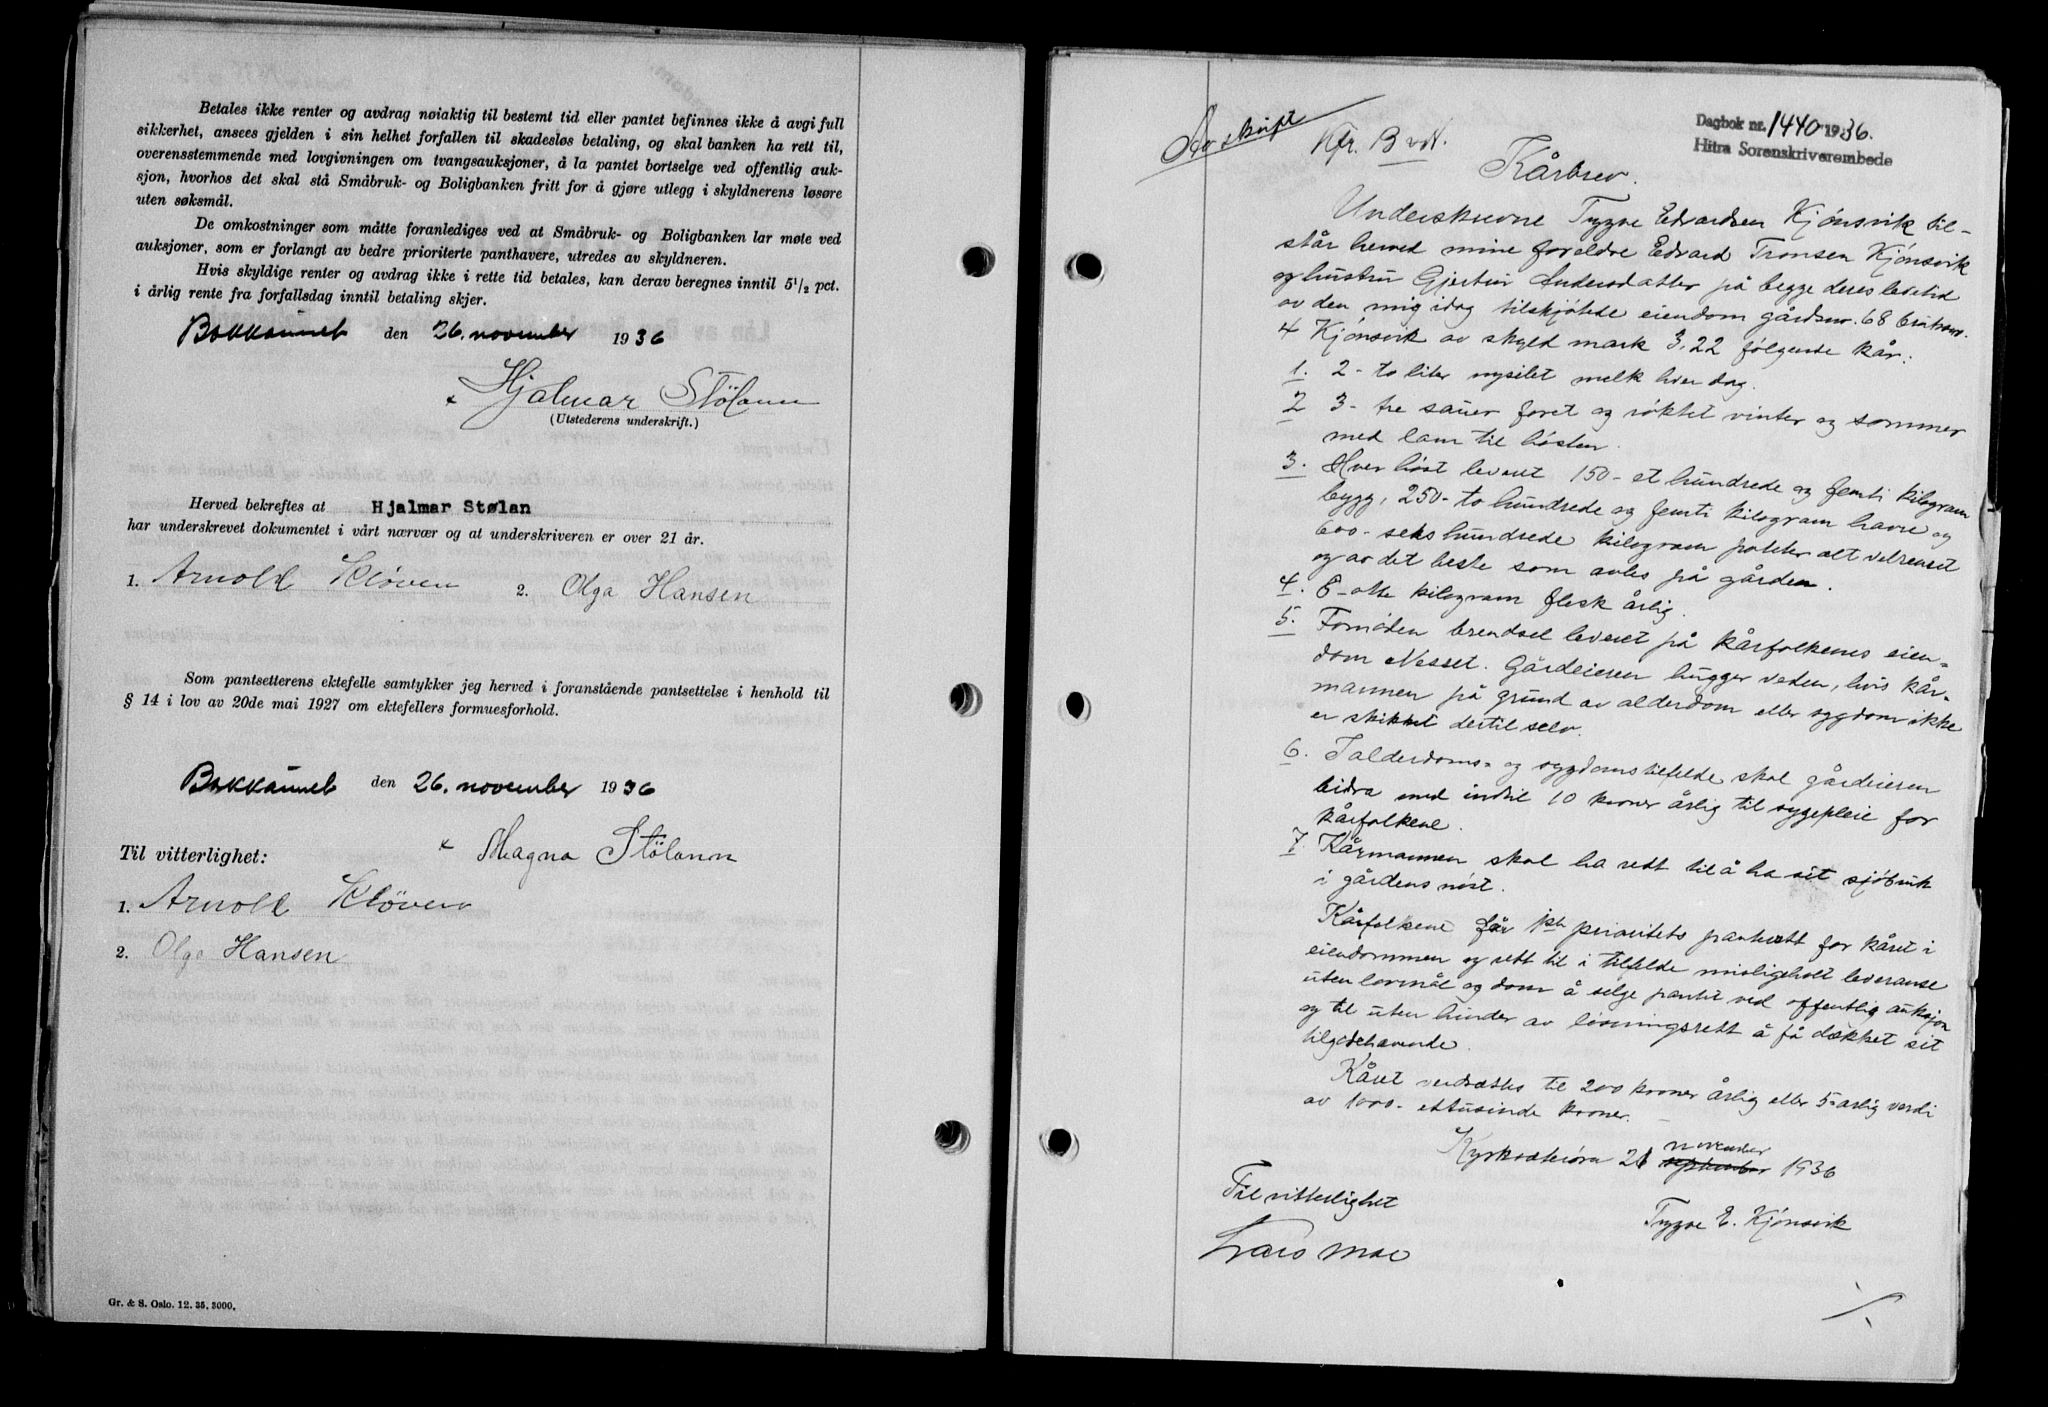 Betales ikke renter og avdrag nøiaktig til bestemt tid eller pantet befinnes ikke å avgi full
sikkerhet, ansees gjelden i sin helhet forfallen til skadesløs betaling, og skal banken ha rett til,
overensstemmende med lovgivningen om tvangsauksjoner, å la pantet bortselge ved offentlig auk-
sjon, hvorhos det skal stå Småbruk- og Boligbanken fritt for å gjøre utlegg i skyldnerens løsøre
uten søksmål.
De omkostninger som måtte foranlediges ved at Småbruk- og Boligbanken lar møte ved
auksjoner, som er forlangt av bedre prioriterte panthavere, utredes av skyldneren.
Hvis skyldige renter og avdrag ikke i rette tid betales, kan derav beregnes inntil 5 1/2 pct.
i årlig rente fra forfallsdag inntil betaling skjer.
den 26. november 1936
x Hjalmar Stölann
(Utstederens underskrift.)
Herved bekreftes at Hjalmar Stølan
har underskrevet dokumentet i vårt nærvær og at underskriveren er over 21 år.
1. Arnold Kløven 2. Olga Hansen
Som pantsetterens ektefelle samtykker jeg herved i foranstående pantsettelse i henhold til
§ 14 i lov av 20de mai 1927 om ektefellers formuesforhold.
den 26. november 1936
x Magna Stölann
Til vitterlighet:
1. Arnold Kløven
2. Olga Hansen
Gr. & S. Oslo. 12. 35. 3000.
Avskrift
Kfr. B vdt.
Dagbok nr. 1440 1936.
Hitra Sorenskriverembede
Kårbrev.
Underskrevne Trygve Edvardsen Kjønsvik til-
står herved mine foreldre Edvard Tronsen Kjønsvik
og hustru Gjertru Andersdatter på begge deres levetid
av den mig idag tilskjøtede eiendom gårdsnr. 68 bruksnr.
4 Kjønsvik av skyld mark 3,22 følgende kår:
1. 2- to liter nysilet melk hver dag.
2 3- tre sauer foret og røktet vinter og sommer
med lam til høsten.
3. Hver høst levert 150- et hundrede og femti kilogram
bygg, 250- to hundrede og femti kilogram havre og
600- seks hundrede kilogram poteter alt velrenset
og av det beste som avles på gården.
4. 8- otte kilogram flesk årlig.
5. Fornøden brendsel leveret på kårfolkenes eien-
dom Nesset. Gårdeieren hugger veden, hvis kår-
mannen på grund av alderdom eller sygdom ikke
er skikket dertil selv.
6. I alderdoms- og sygdomstilfelde skal gårdeieren
bidra med indtil 10 kroner årlig til sygepleie for
kårfolkene.
7. Kårmannen skal ha rett til å ha sit sjøbruk
i gårdens nøst.
Kårfolkene får 1ste prioritets panterett for kåret i
eiendommen og rett til i tilfelde misligeholt leveranse
uten lovmål og dom å selge pantet ved offentlig auksjon
og til uten hinder av løsningsrett å få dækket sit
tilgodehavende.
Kåret verdsættes til 200 kroner årlig eller 5-årlig verdi
av 1000- ettusinde kroner.
Kyrksæterøra 21 november september 1936
Til vitterlighet
Trygve E. Kjönsvik
Lars Moe